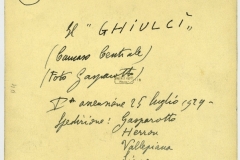 Il "GHIULCÌ"
(Caucaso Centrale)
(Foto Gasparotto)
Iª ascensione 25 luglio 1929-
Spedizione: Gasparotto
Herron
Vallepiana